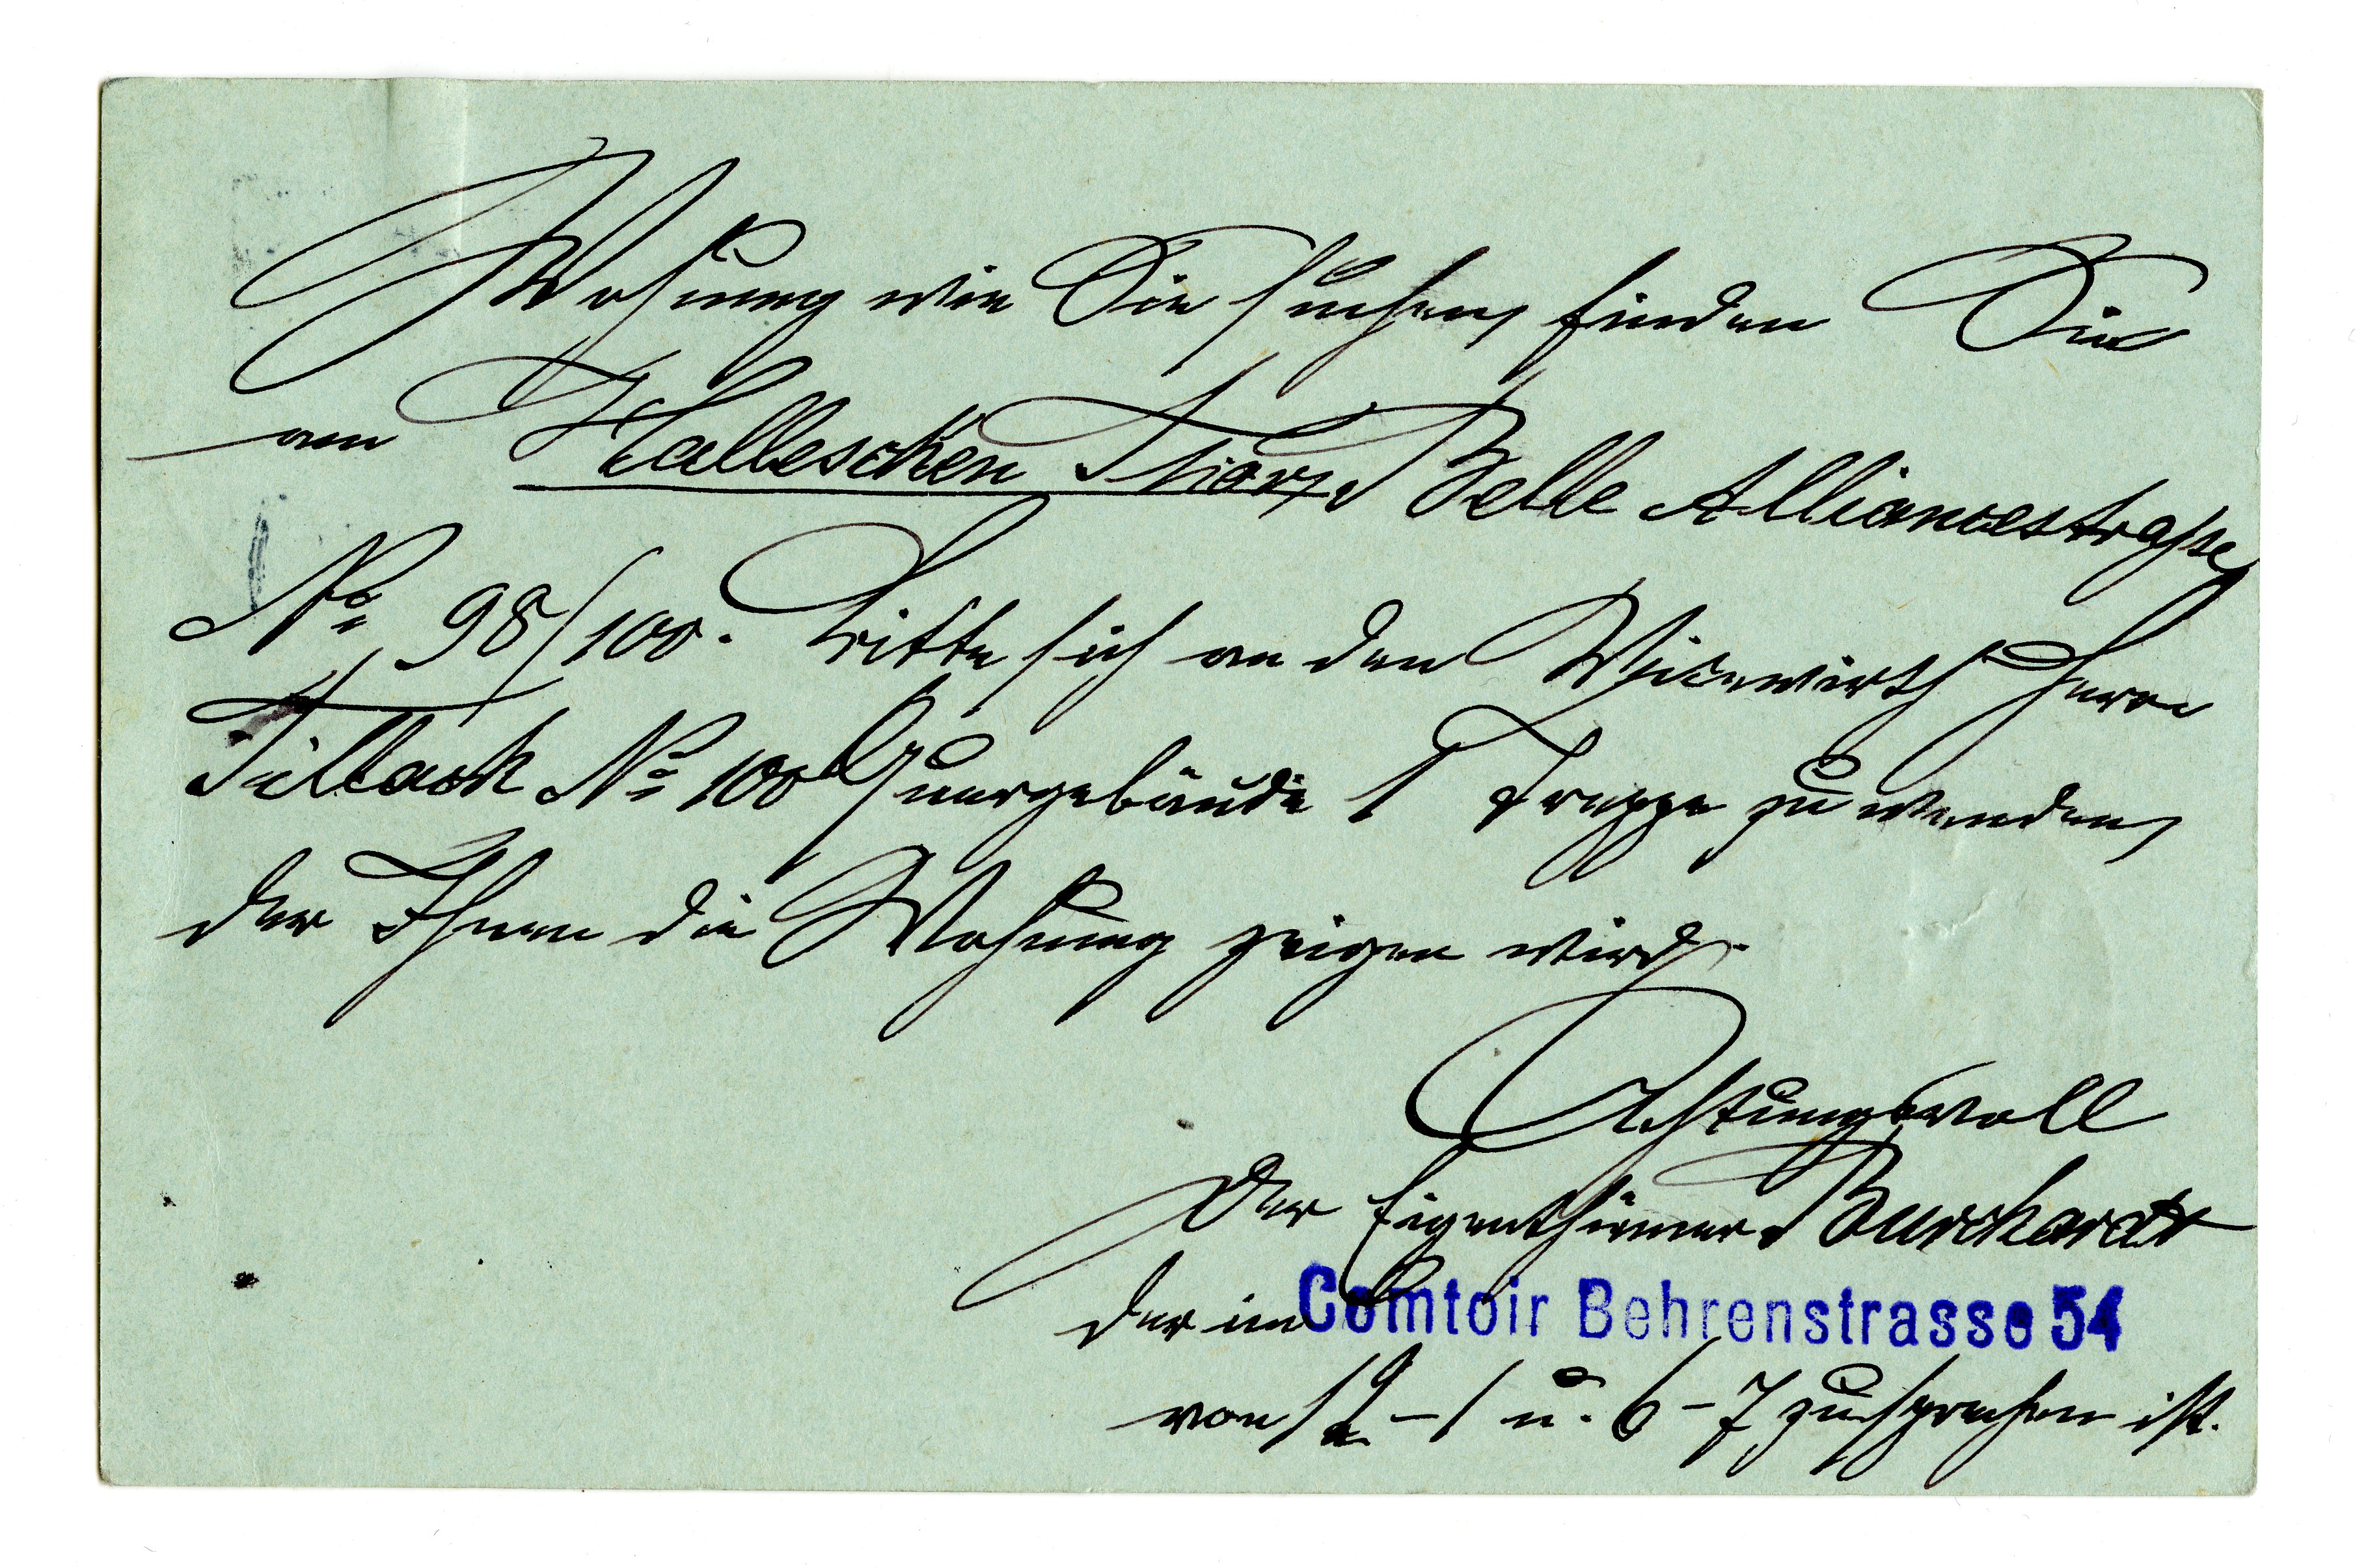 Wohnung wie Sie suchen, finden Sie
am Halleschen Thor, Belle Alliancestraße,
No 98/100. bitte sich an den Vicewirth Herrn
Tillack No 100 Quergebäude 1 Treppe zu wenden,
der Ihnen die Wohnung zeigen wird.
Achtungsvoll
Der Eigenthümer Burchardt
der im Comtoir Behrenstrasse 54
von 12–1 u. 6–7 zu sprechen ist.